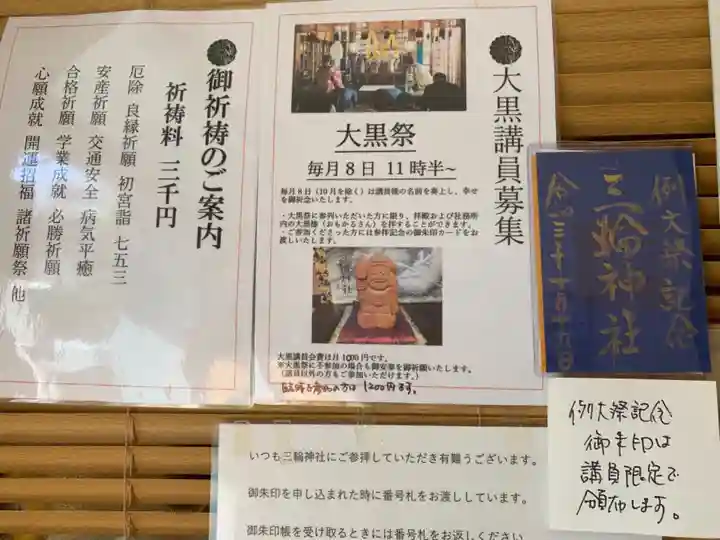 御祈祷のご案内
祈祷料 三千円
厄除 良縁祈願 初宮詣 七五三
安産祈願 交通安全 病気平癒
合格祈願 学業成就 必勝祈願
心願成就 開運招福 諸祈願祭 他
大黒講員募集
大黒祭
毎月8日 11時半~
毎月8日(10月を除く)は講員様の名前を奏上し、幸せ
を御祈念いたします。
・大黒祭に参列いただいた方に限り、拝殿および社務所
内の大黒様(おもかるさん)を拝することができます。
・ご参加くださった方には参拝記念の御朱印カードをお
渡しいたします。
大黒講員会費は月1000円です。
※大黒祭に不参加の場合も御安泰を御祈願いたします。
(講員以外の方もご参加いただけます。)
1200円
例大祭記念
三輪神社
例大祭記念
御朱印は
講員限定で
頒布します。
いつも三輪神社にご参拝していただき有難うございます。
御朱印を申し込まれた時に番号札をお渡ししています。
御朱印帳を受け取るときには番号札をお返しください